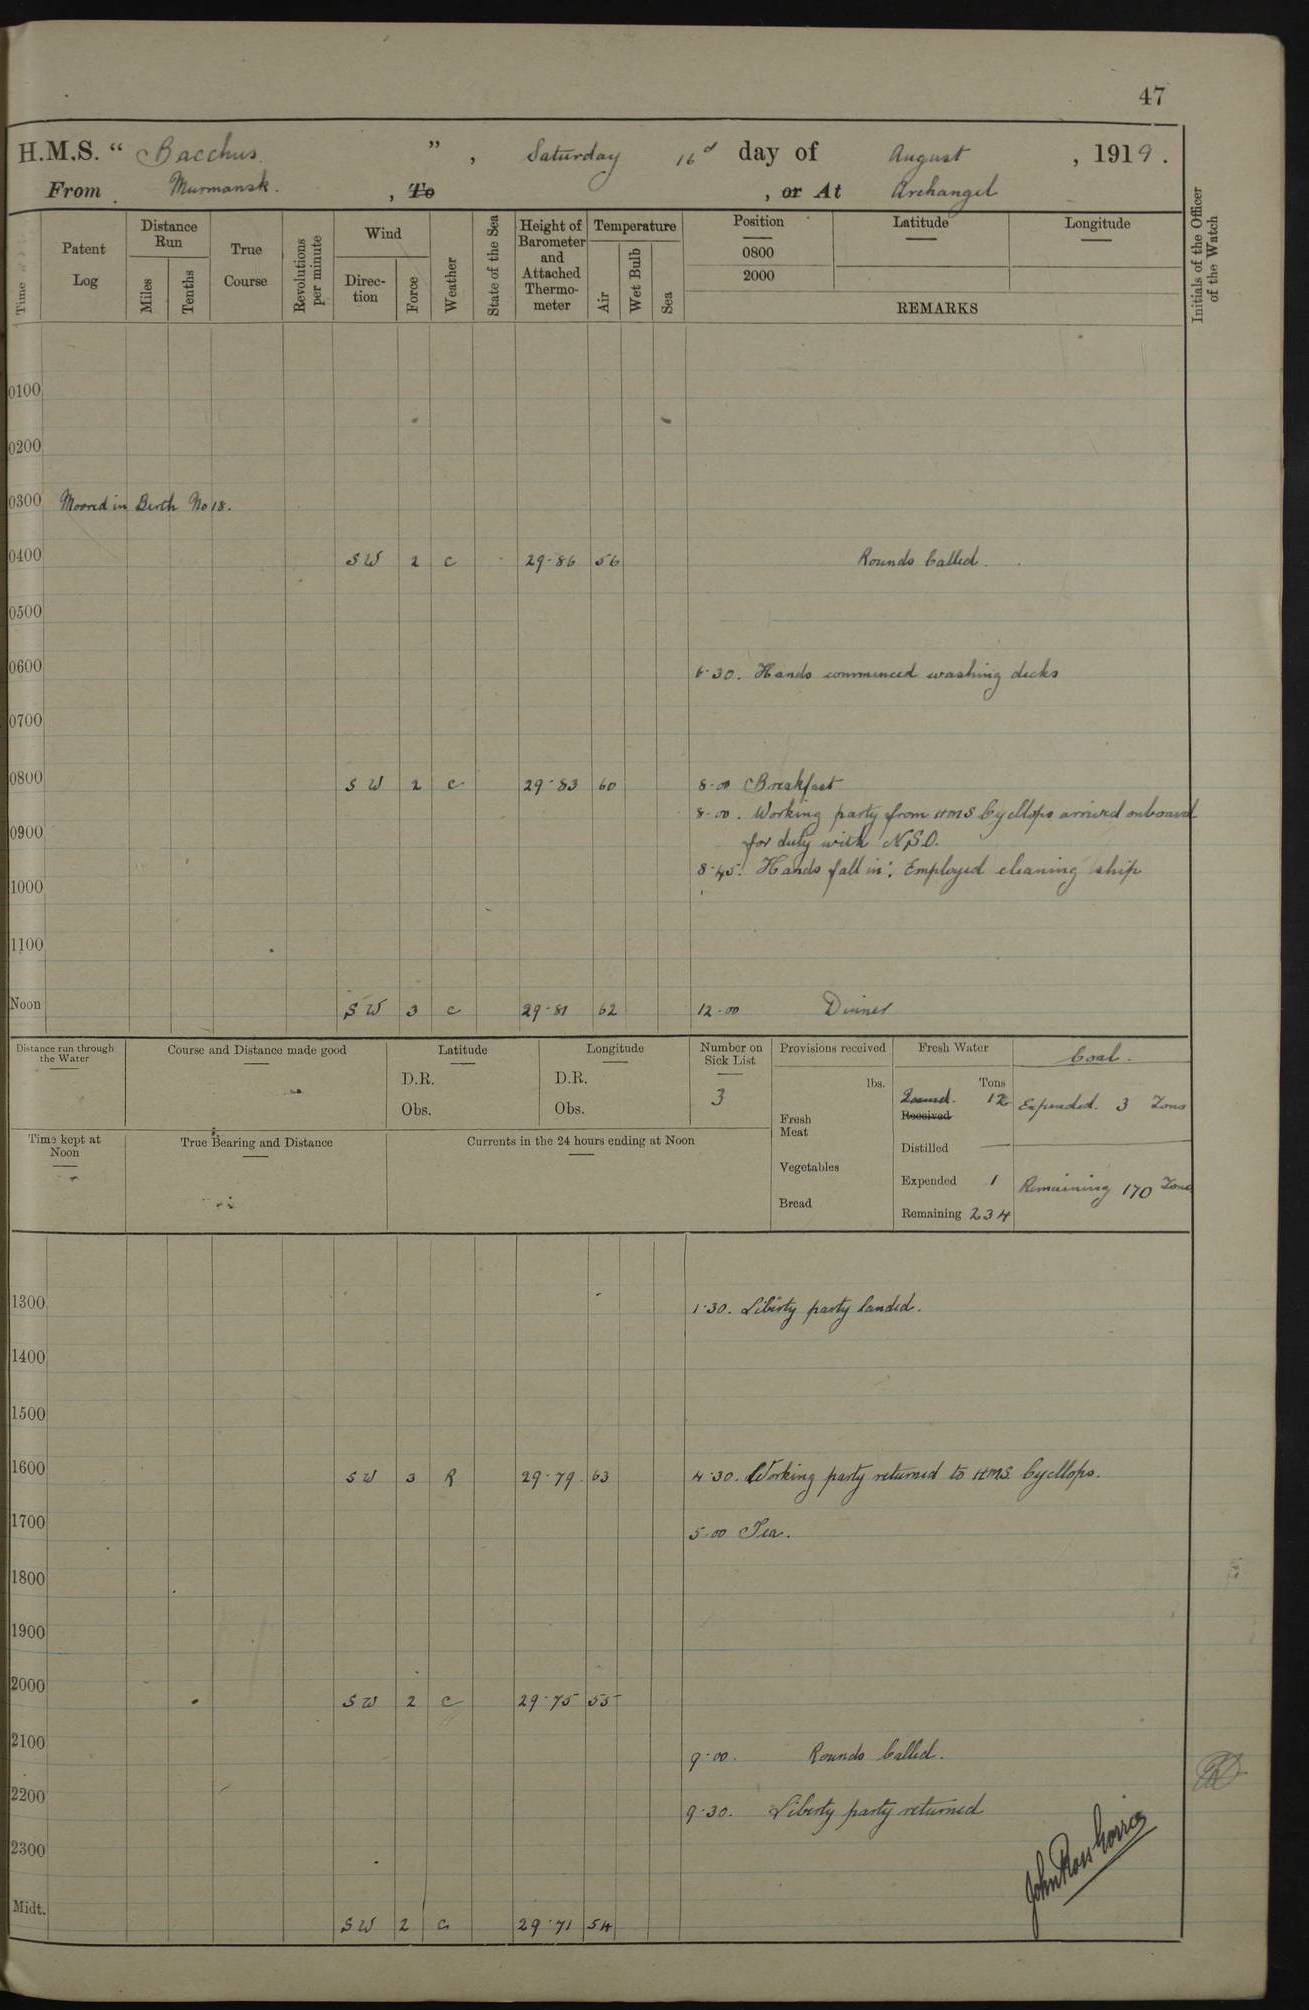 47
H.M.S. “ Bacchus ” , Saturday 16d day of August , 1919 .
From Murmansk. , To , or At Archangel
Time
Patent Log
Distance Run
Miles
Tenths
True Course
Revolutions per minute
Wind
Direc-tion
Force
Weather
State of the Sea
Height of Barometer and Attached Thermo-meter
Temperature
Air
Wet Bulb
Sea
Position
0800
2000
Latitude
Longitude
REMARKS
Initials of the Officer of the Watch
0100
0200
0300 Moored in Berth No 18.
0400 SW 2 c 29·86 56 Rounds Called.
0500
0600 6·30. Hands commenced washing decks
0700
0800 SW 2 c 29·83 60 8·00 Breakfast
8·00. Working party from HMS Cycllops arrived onboard
0900 for duty with N.S.O.
8·45. Hands fall in: Employed cleaning ship
1000
1100
Noon SW 3 c 29·81 62 12·00 Dinner
Distance run through the Water
Course and Distance made good
Latitude
D.R.
Obs.
Longitude
D.R.
Obs.
Number on Sick List
3
Provisions received
lbs.
Fresh Meat
Vegetables
Bread
Fresh Water
Tons
12
Received
Distilled —
Expended 1
Remaining 234
Coal.
Expended. 3 Tons
Remaining 170 Tons
Time kept at Noon
True Bearing and Distance
Currents in the 24 hours ending at Noon
1300 1·30. Liberty party landed.
1400
1500
1600 SW 3 R 29·79 63 4·30. Working party returned to HMS Cycllops.
1700 5·00 Tea.
1800
1900
2000 SW 2 c 29·75 55
2100 9·00. Rounds Called.
2200 9·30. Liberty party returned
2300
Midt. SW 2 c 29·71 54